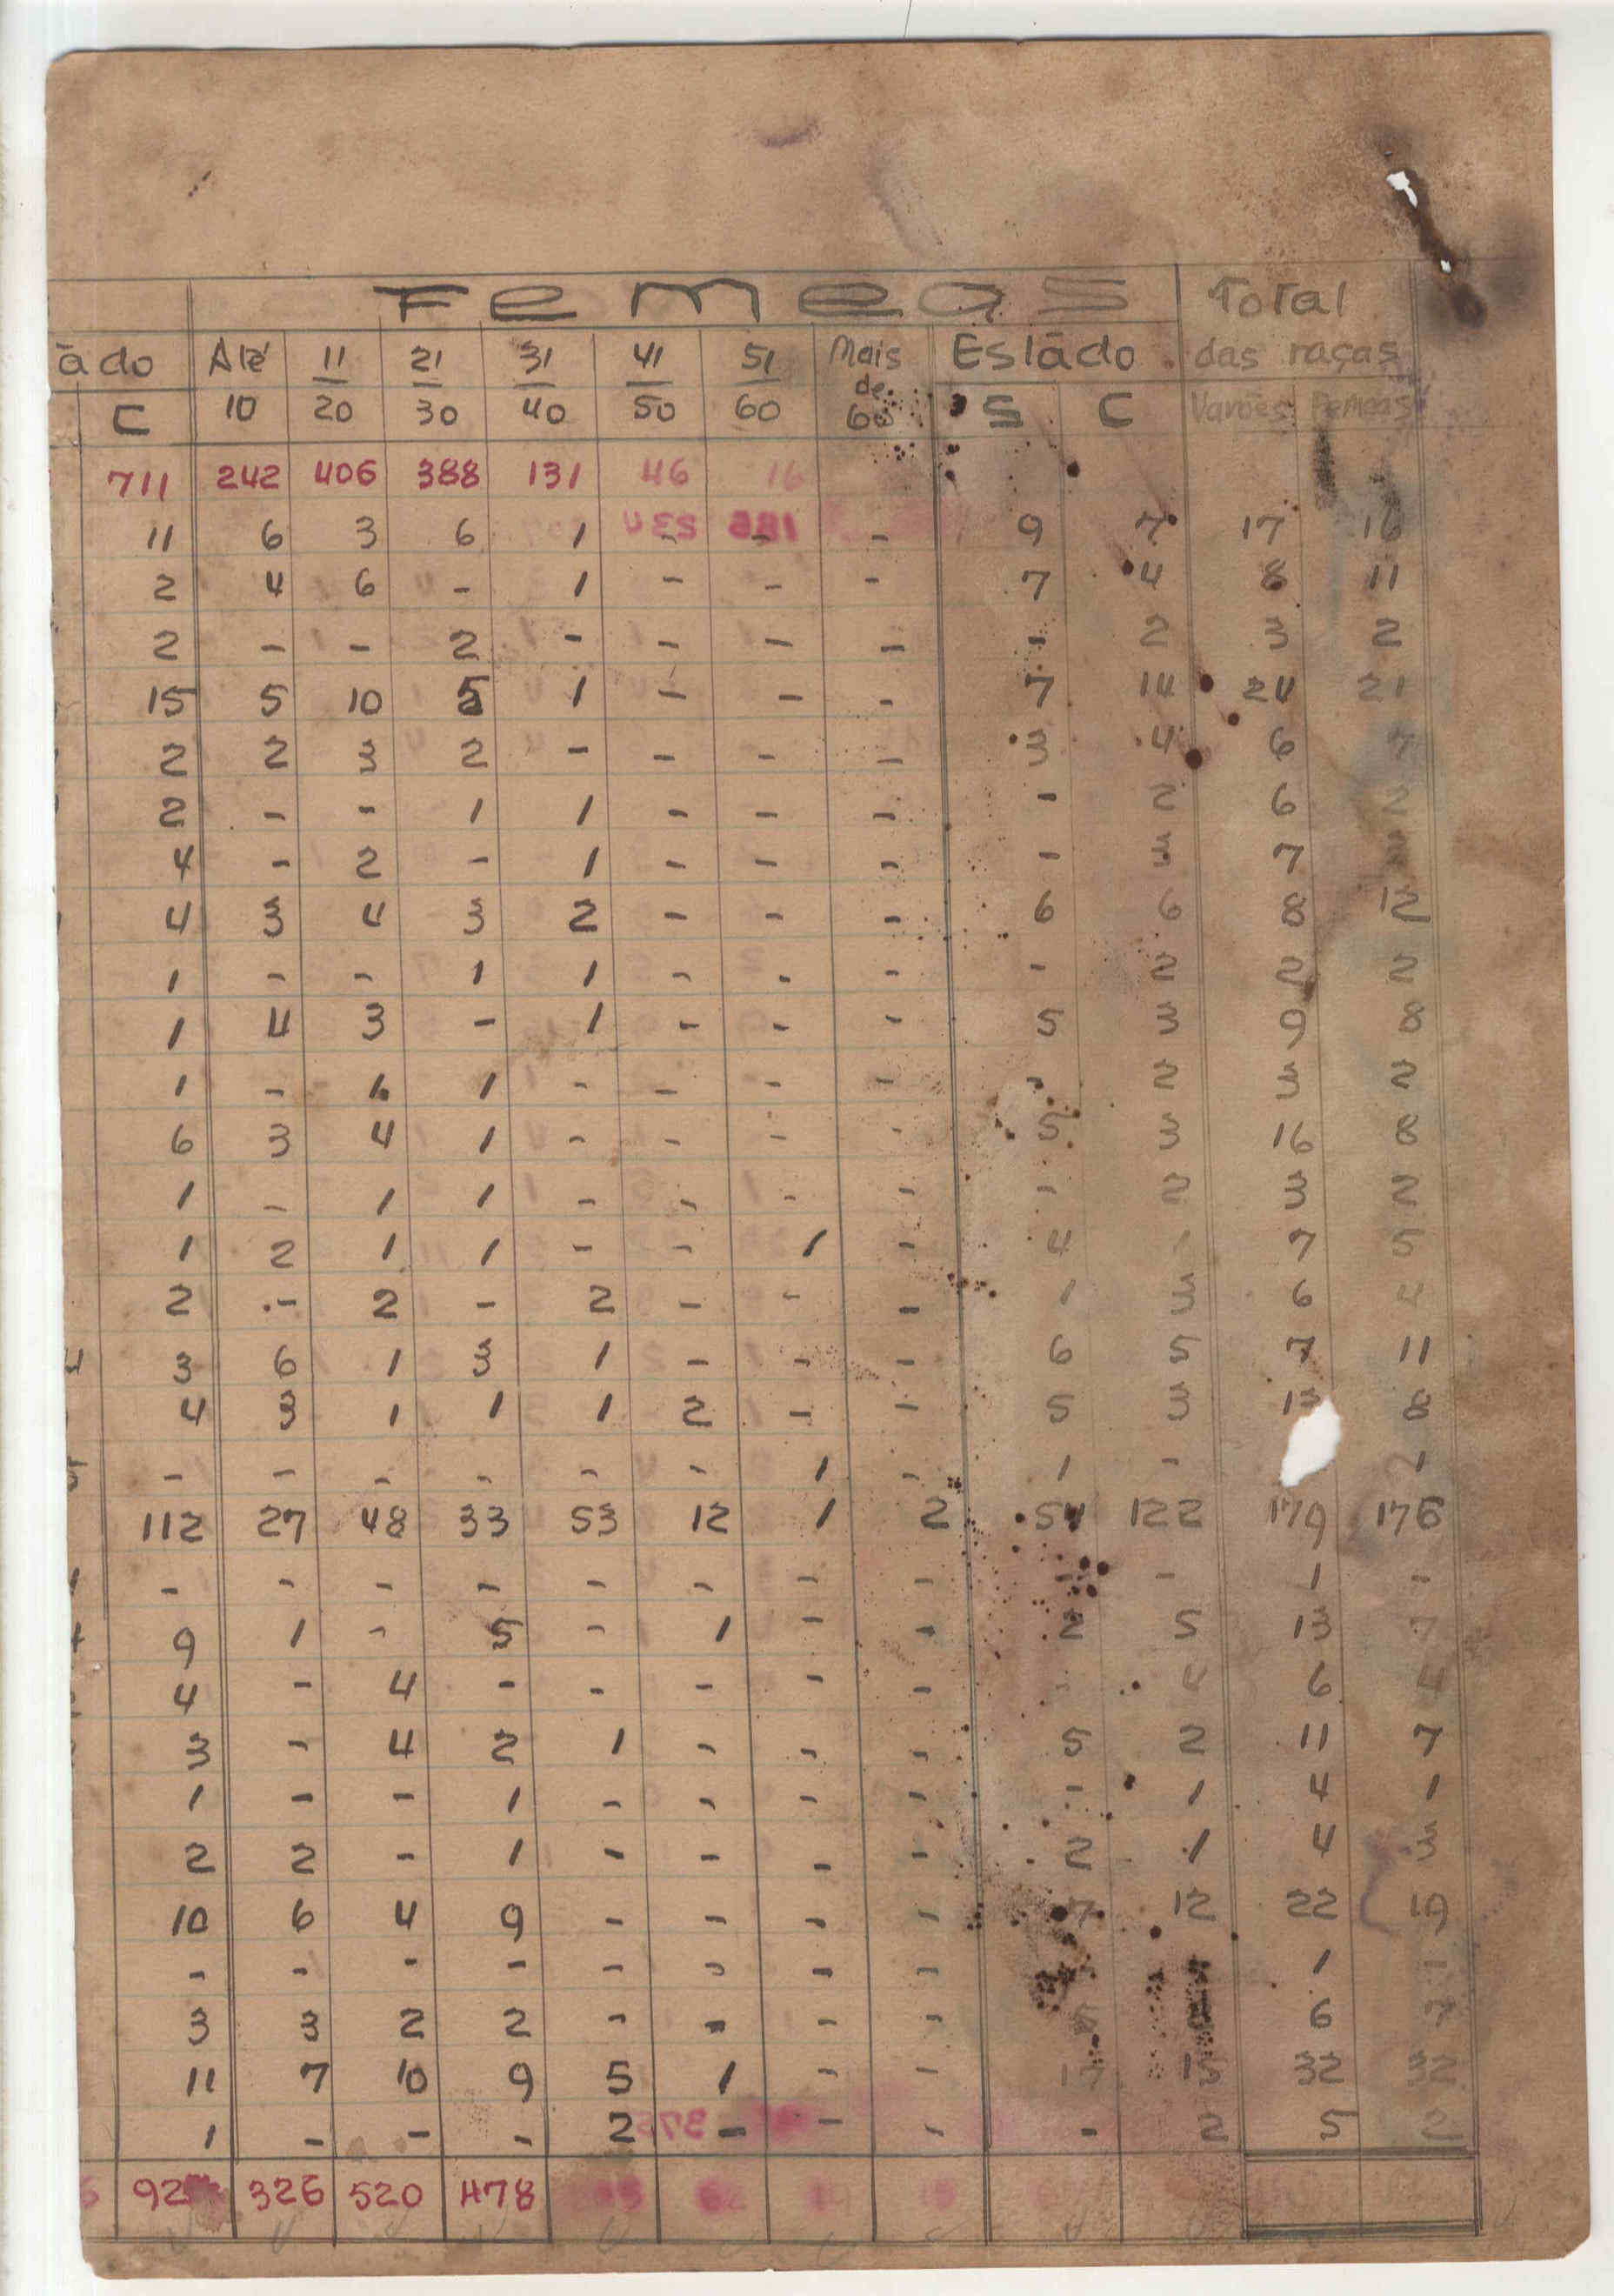 Femeas Total
ãdo Até 11 21 31 41 51 Mais Estãdo das raças
de
C 10 20 30 40 50 60 60 S C Varões Femeas
711 242 406 388 131 46 16
11 6 3 6 1 - - - 9 7 17 16
2 4 6 - 1 - - - 7 4 8 11
2 - - 2 - - - - - 2 3 2
15 5 10 5 1 - - - 7 14 24 21
2 2 3 2 - - - - 3 4 6 7
2 - - 1 1 - - - - 2 6 2
4 - 2 - 1 - - - - 3 7 3
4 3 4 3 2 - - - 6 6 8 12
1 - - 1 1 - - - - 2 2 2
1 4 3 - 1 - - - 5 3 9 8
1 - 1 1 - - - - - 2 3 2
6 3 4 1 - - - - 5 3 16 8
1 - 1 1 - - - - - 2 3 2
1 2 1 1 - - 1 - 4 1 7 5
2 - 2 - 2 - - - 1 3 6 4
3 6 1 3 1 - - - 6 5 7 11
4 3 1 1 1 2 - - 5 3 13 8
- - - - - - 1 - 1 - 1
112 27 48 33 53 12 1 2 54 122 179 176
- - - - - - - - - 1 -
9 1 - 5 - 1 - - 2 5 13 7
4 - 4 - - - - - - 4 6 4
3 - 4 2 1 - - - 5 2 11 7
1 - - 1 - - - - - 1 4 1
2 2 - 1 - - - - 2 1 4 3
10 6 4 9 - - - - 7 12 22 19
- - - - - - - - 1
3 3 2 2 - - - - 6 7
11 7 10 9 5 1 - - 17 15 32 32
1 - - - 2 - - - - 2 5 2
92 326 520 478